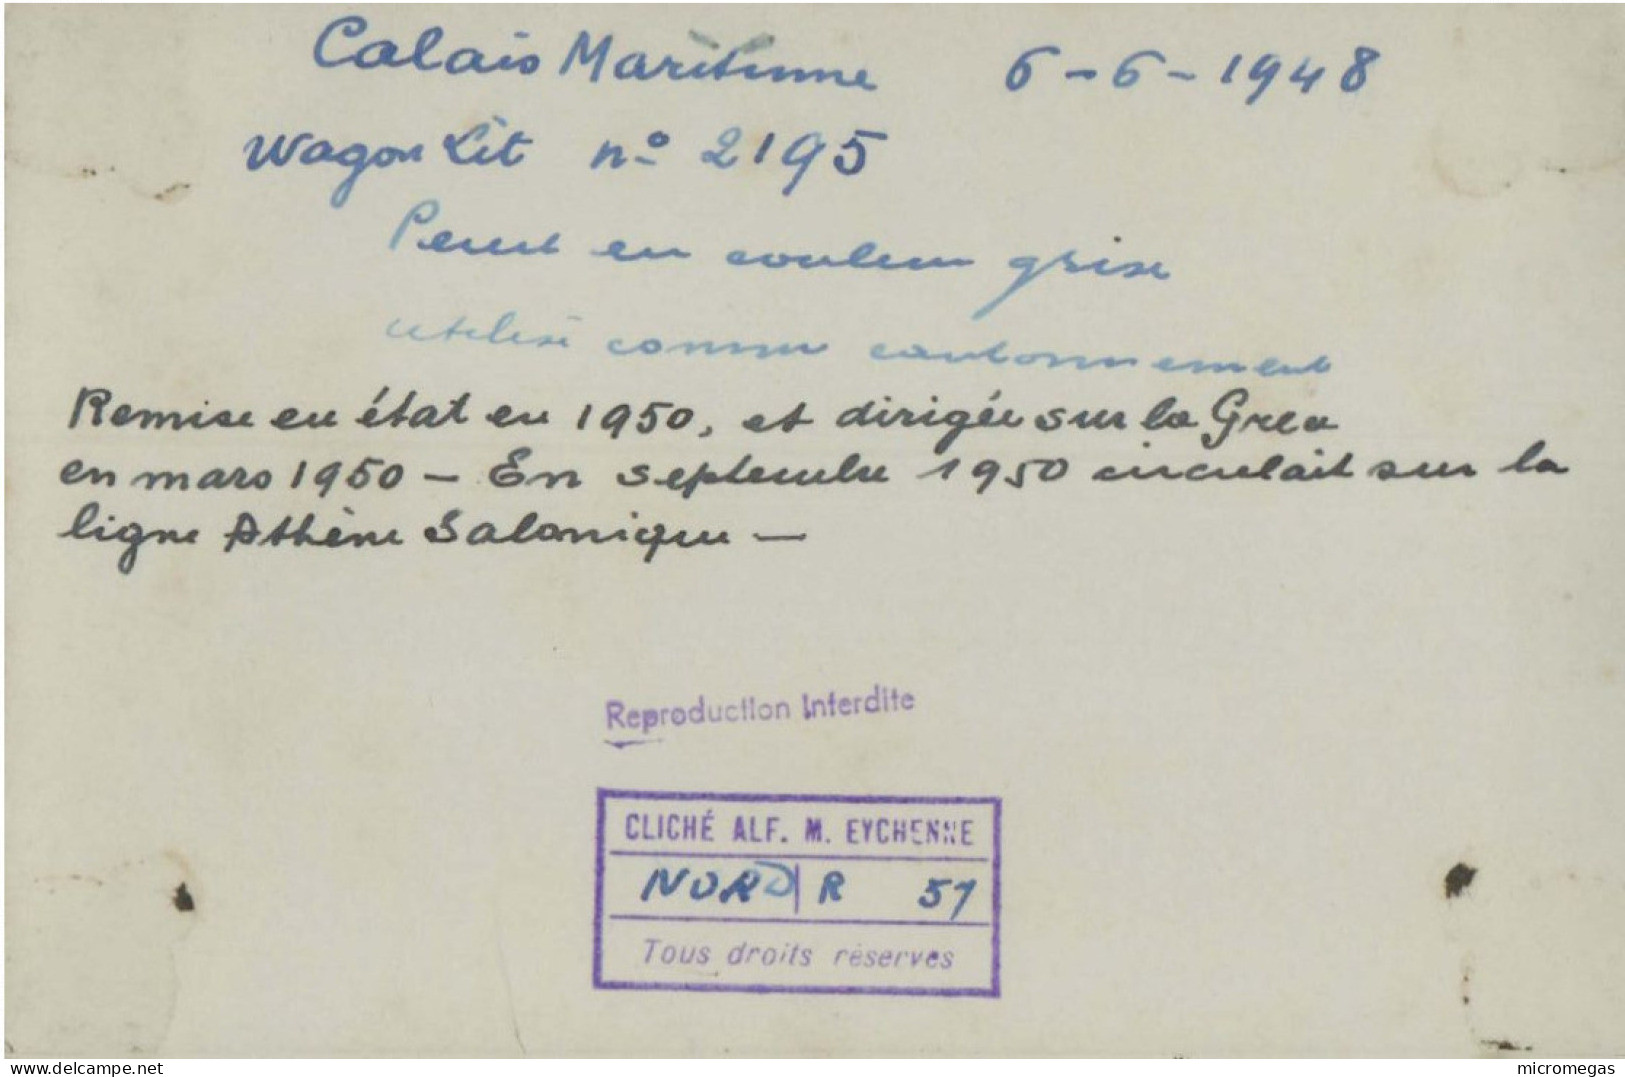 Calais Maritime 6-6-1948
Wagon Lit n° 2195
Peint en couleur grise
utilisé comme cantonnement
Remise en état en 1950, et dirigée sur la Grèce
en mars 1950 - En septembre 1950 circulait sur la
ligne Athène Salonique -
Reproduction Interdite
CLICHÉ ALF. M. EYCHENNE
NORD R 51
Tous droits réservés
www.delcampe.net
micromegas